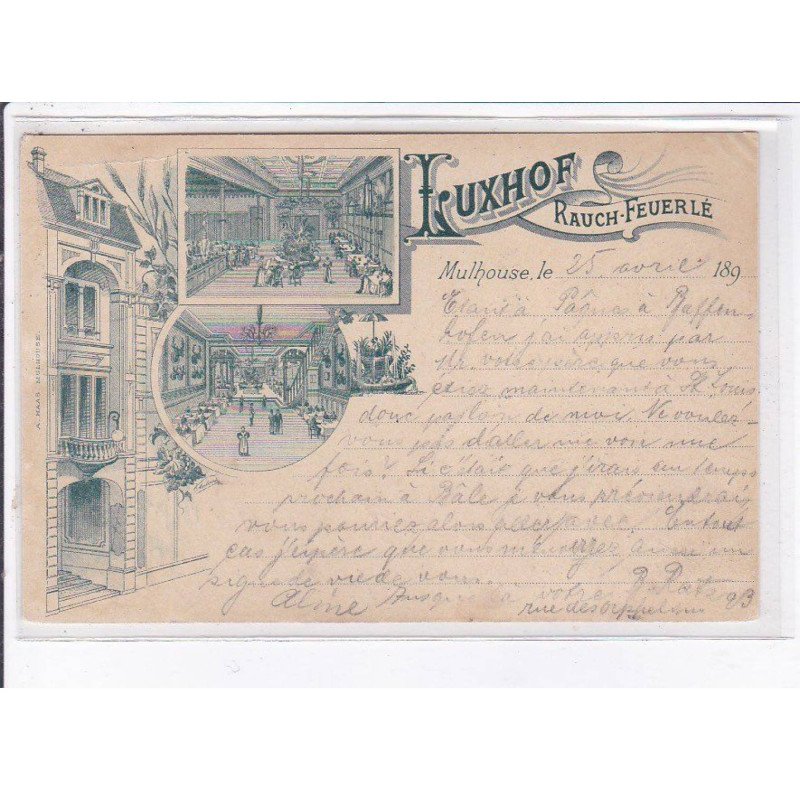 LUXHOF
RAUCH-FEUERLÉ
Mulhouse, le 25 avril 189
Etant à Pâques à Paffen-
hofen j'ai appris par
votre que vous
étiez maintenant à St. Louis
donc de moi Ne voulez-
vous pas d'aller me voir une
fois? Si c'était que j'irai un temps
prochain à Bâle je vous
vous pourrez alors avec. En tout
cas j'espère que vous m'enverrez aussi un
signe de vie de vous.
Aline Jusque à votre
rue des 23
A. HAAS MULHOUSE.